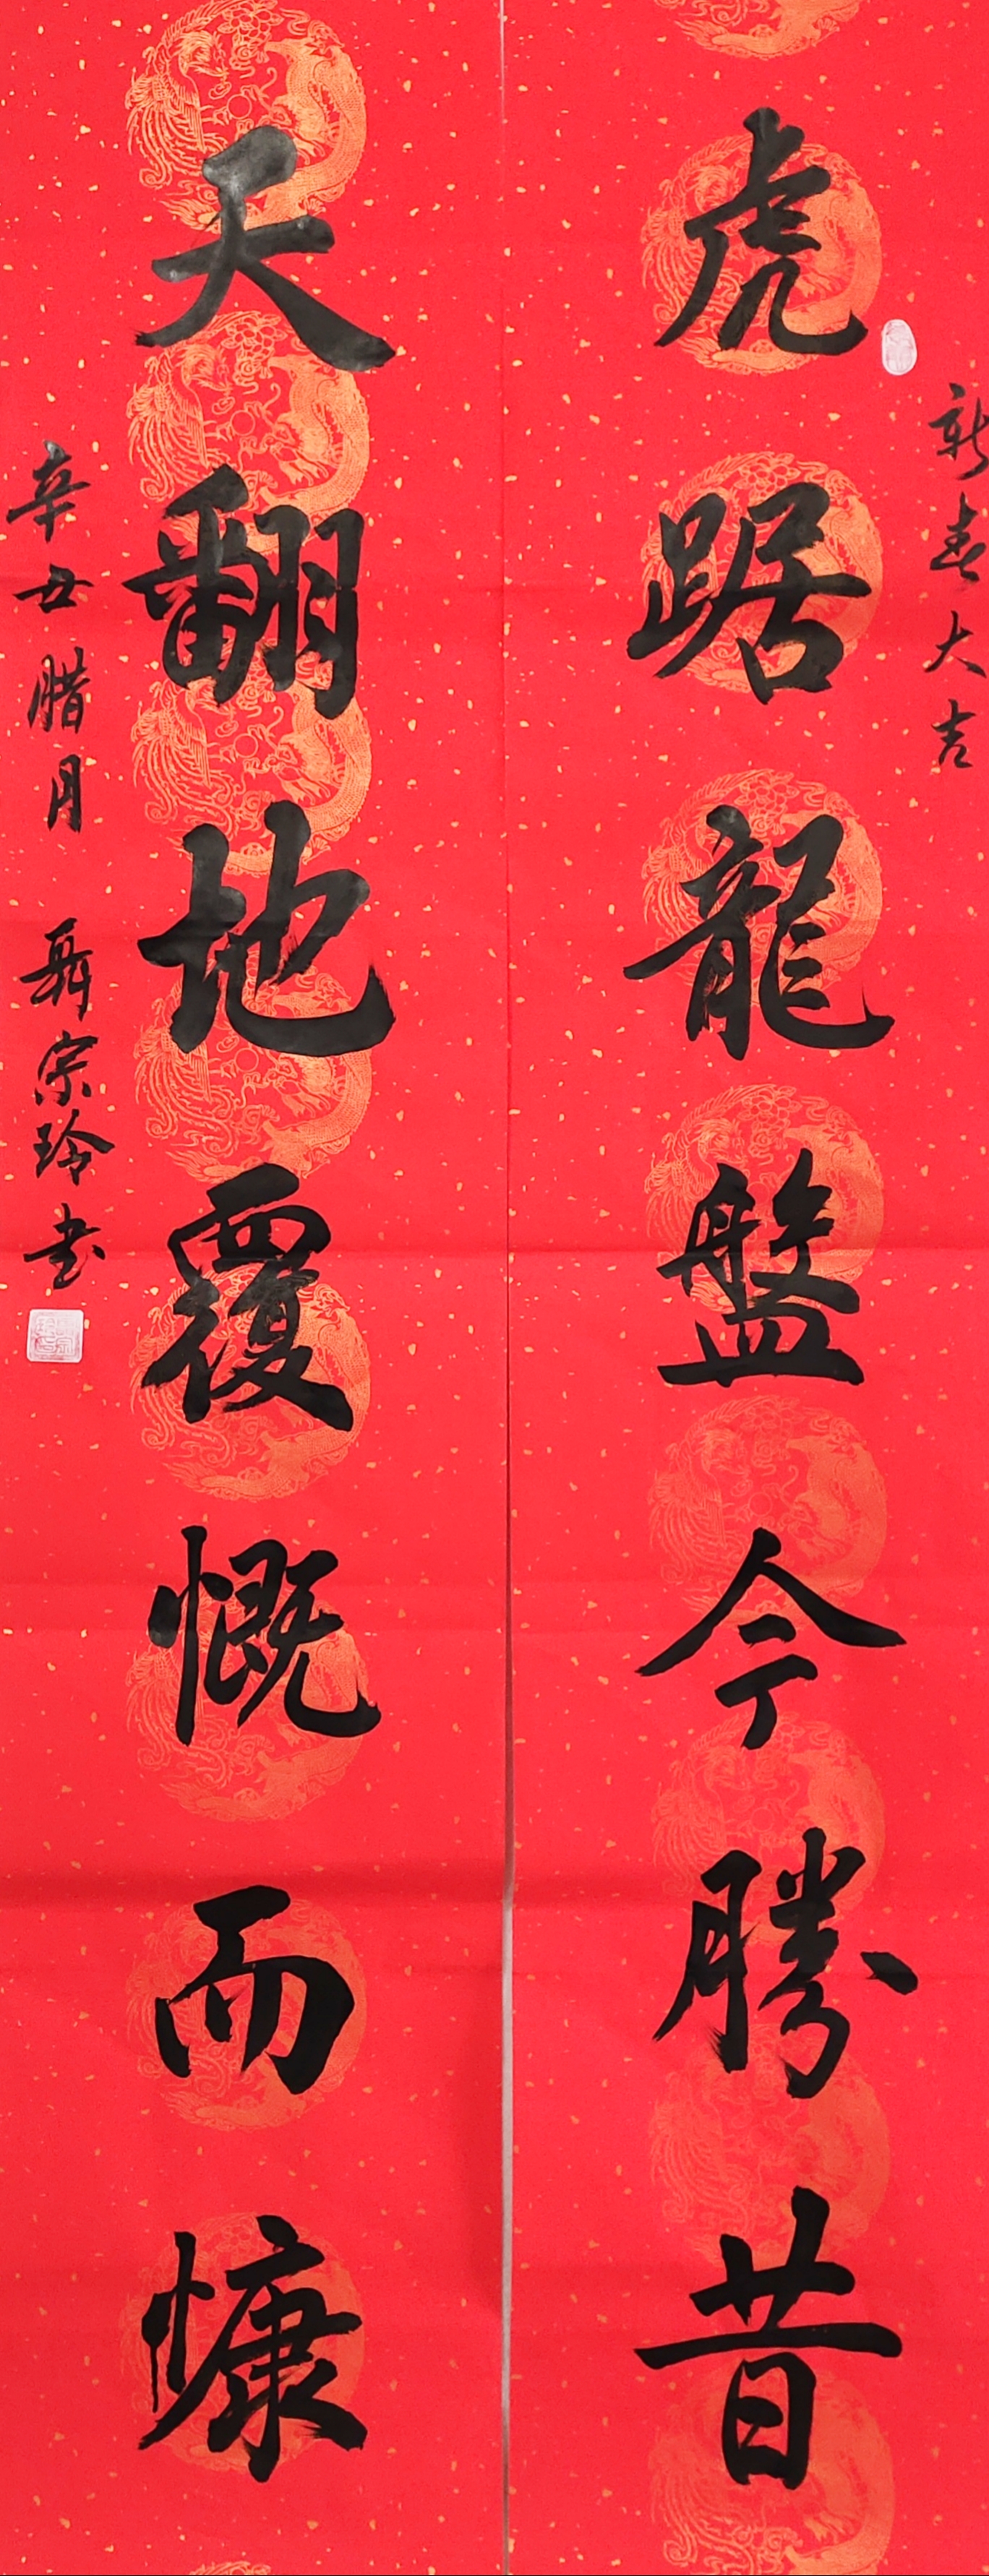 新春大吉
虎踞龍盤今勝昔
天翻地覆慨而慷
辛丑腊月 聶宗玲书